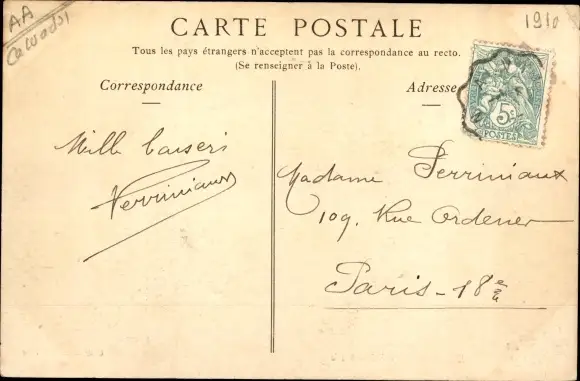 AA
Calvados
1910
CARTE POSTALE
Tous les pays étrangers n'acceptent pas la correspondance au recto.
(Se renseigner à la Poste).
Correspondance
Adresse
5c
POSTES
Mille baisers
Perriniaux
Madame Perriniaux
109, Rue Ordener
Paris - 18ème